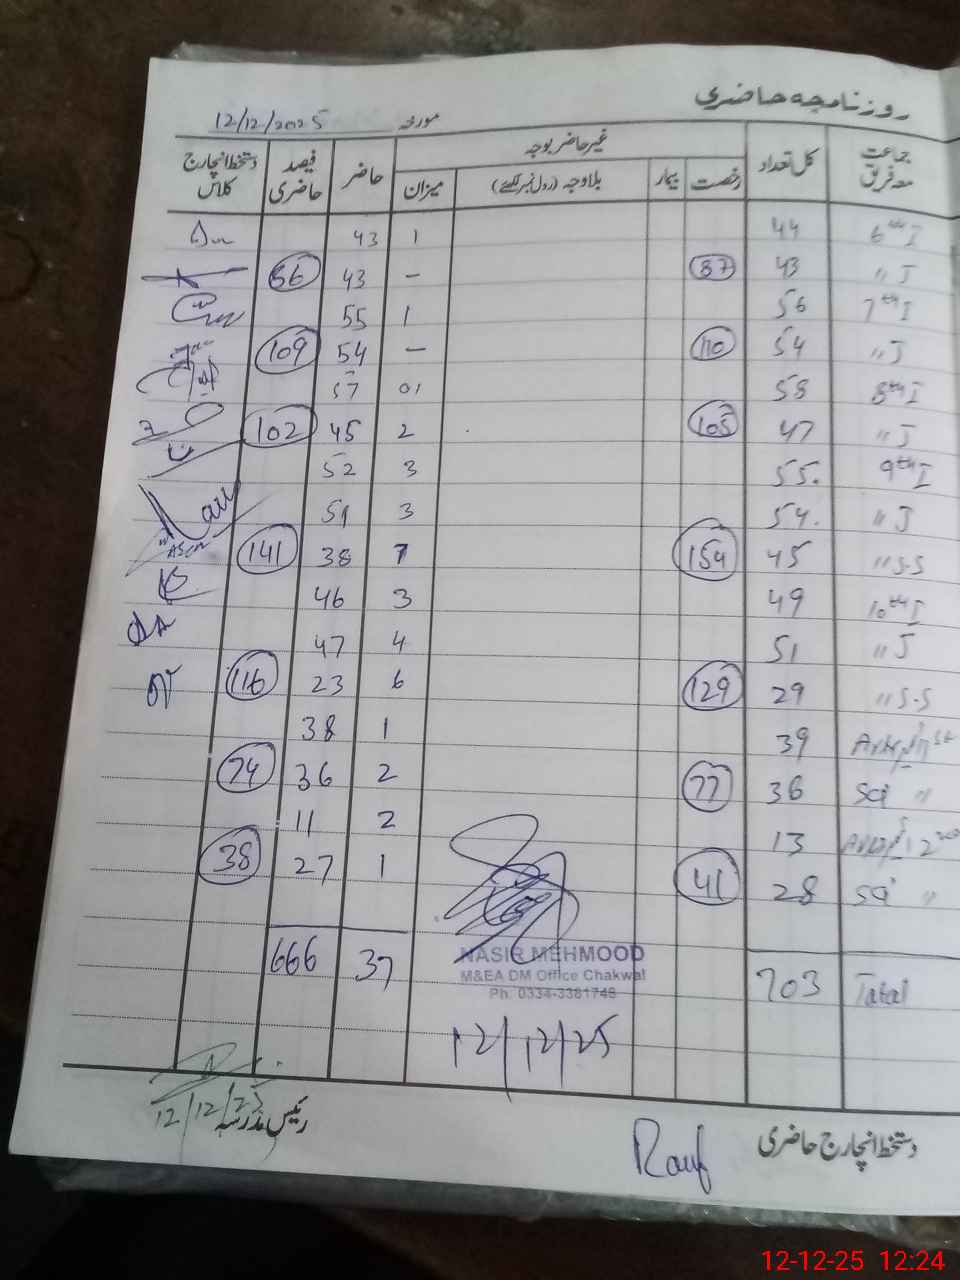 روزنامچہ حاضری
مورخہ 12/12/2025
جماعت معہ فریق کل تعداد غیر حاضر بوجہ حاضر فیصد حاضری دستخط انچارج کلاس
رخصت بیمار بلاوجہ (رول نمبر لکھئے) میزان
6th I 44 1 43
" J 43 (87) - 43 (86)
7th I 56 1 55
" J 54 (110) - 54 (109)
8th I 58 01 57
" J 47 (105) 2 45 (102)
9th I 55. 3 52
" J 54. 3 51
" S.S 45 (154) 7 38 (141)
10th I 49 3 46
" J 51 4 47
" S.S 29 (129) 6 23 (116)
39 1 38
" 38 (77) 2 36 (74)
13 2 11
" 28 (41) 1 27 (38)
Total 703 37 666
NASIR MEHMOOD
M&EA DM Office Chakwal
Ph: 0334-3381748
12/12/25
رئیس مدرسہ
12/12/25
دستخط انچارج حاضری
Rauf
12-12-25 12:24